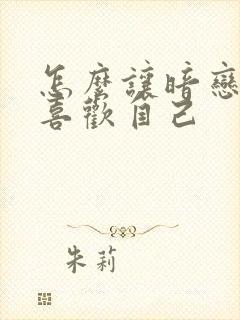 怎麼讓暗戀
喜歡自己
朱莉